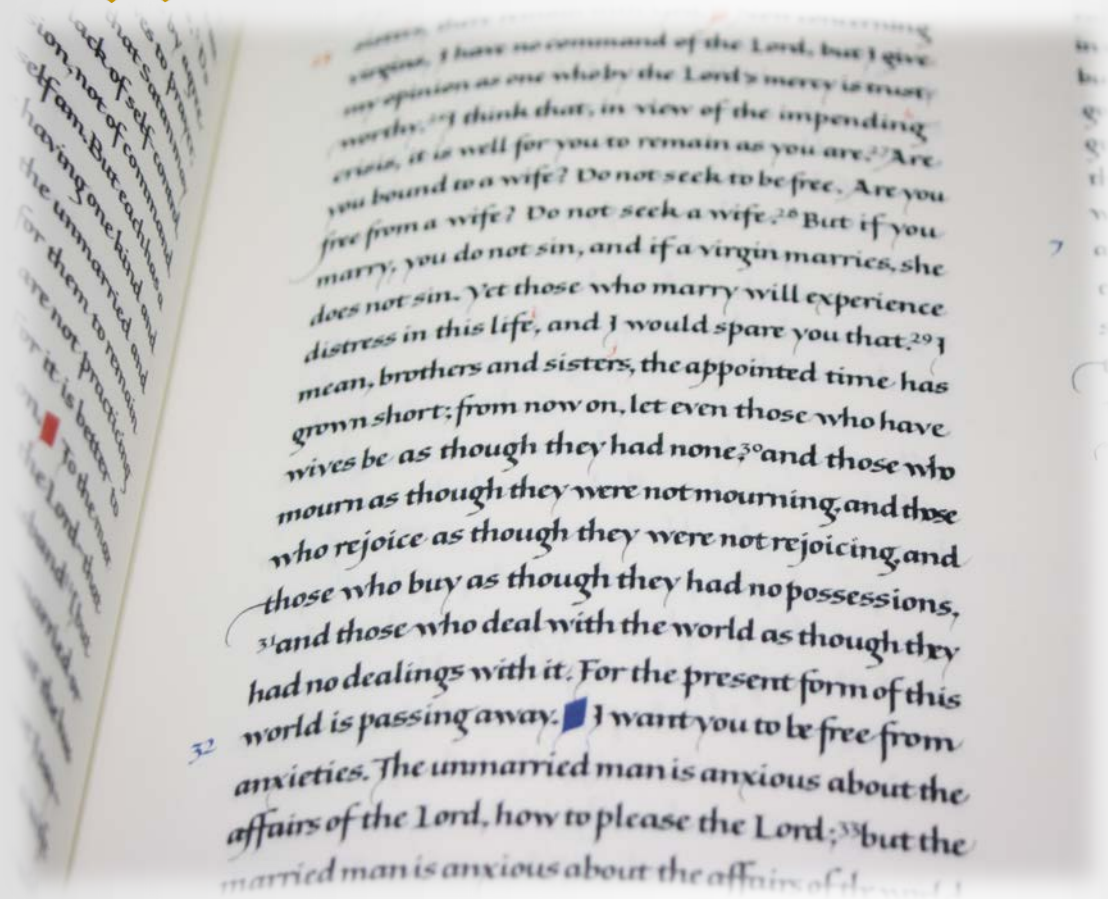 by agree
es to prayer,
hat Satan may
ack of self-control.
sion, not of command.
self am. But each has a
having one kind and
the unmarried and
for them to remain
are not practicing
for it is better to
To the mar
the Lord—that
concerning
25
virgins, I have no command of the Lord, but I give
my opinion as one who by the Lord's mercy is trust
worthy. 26 I think that, in view of the impending
crisis, it is well for you to remain as you are. 27 Are
you bound to a wife? Do not seek to be free. Are you
free from a wife? Do not seek a wife. 28 But if you
marry, you do not sin, and if a virgin marries, she
does not sin. Yet those who marry will experience
distress in this life, and I would spare you that. 29 I
mean, brothers and sisters, the appointed time has
grown short; from now on, let even those who have
wives be as though they had none; 30 and those who
mourn as though they were not mourning, and those
who rejoice as though they were not rejoicing, and
those who buy as though they had no possessions,
31 and those who deal with the world as though they
had no dealings with it. For the present form of this
world is passing away. I want you to be free from
32
anxieties. The unmarried man is anxious about the
affairs of the Lord, how to please the Lord; 33 but the
married man is anxious about the affairs of the
7